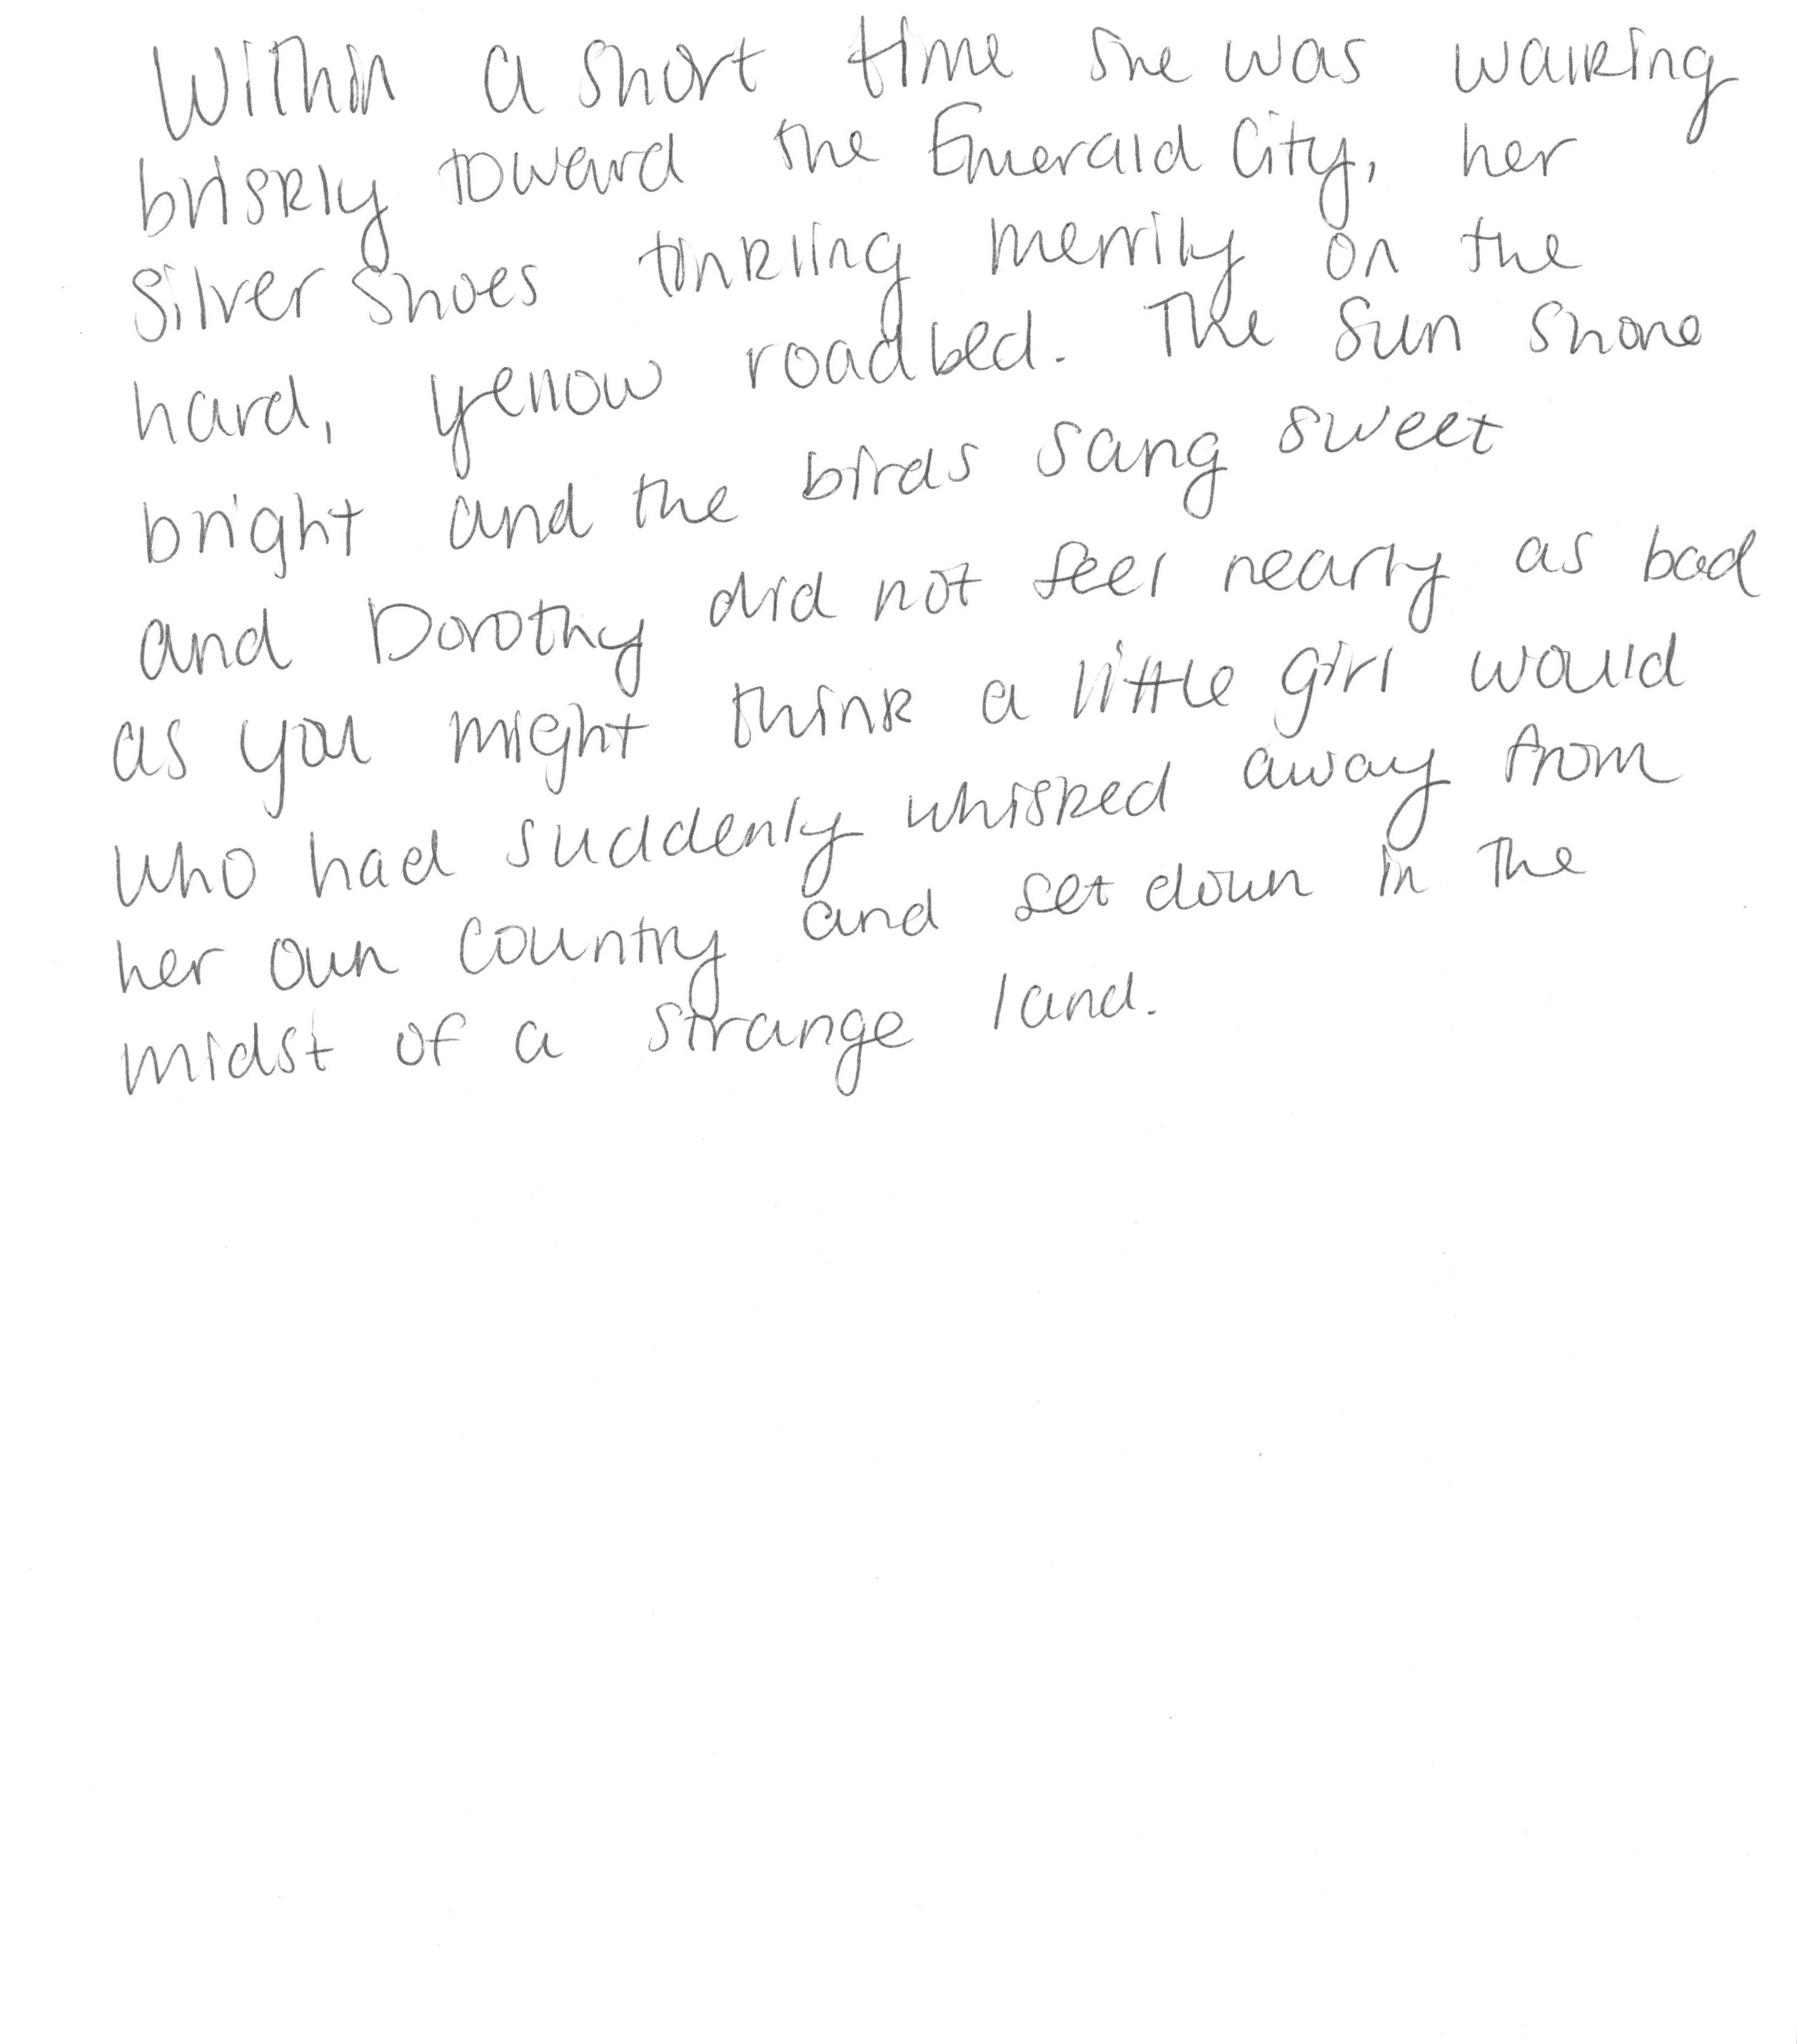 Within a short time she was walking
briskly toward the Emerald City, her
Silver Shoes tinkling merrily on the
hard, yellow roadbed. The sun shone
bright and the birds sang sweet
and Dorothy did not feel nearly as bad
as you might think a little girl would
who had suddenly whisked away from
her own country and set down in the
midst of a strange land.